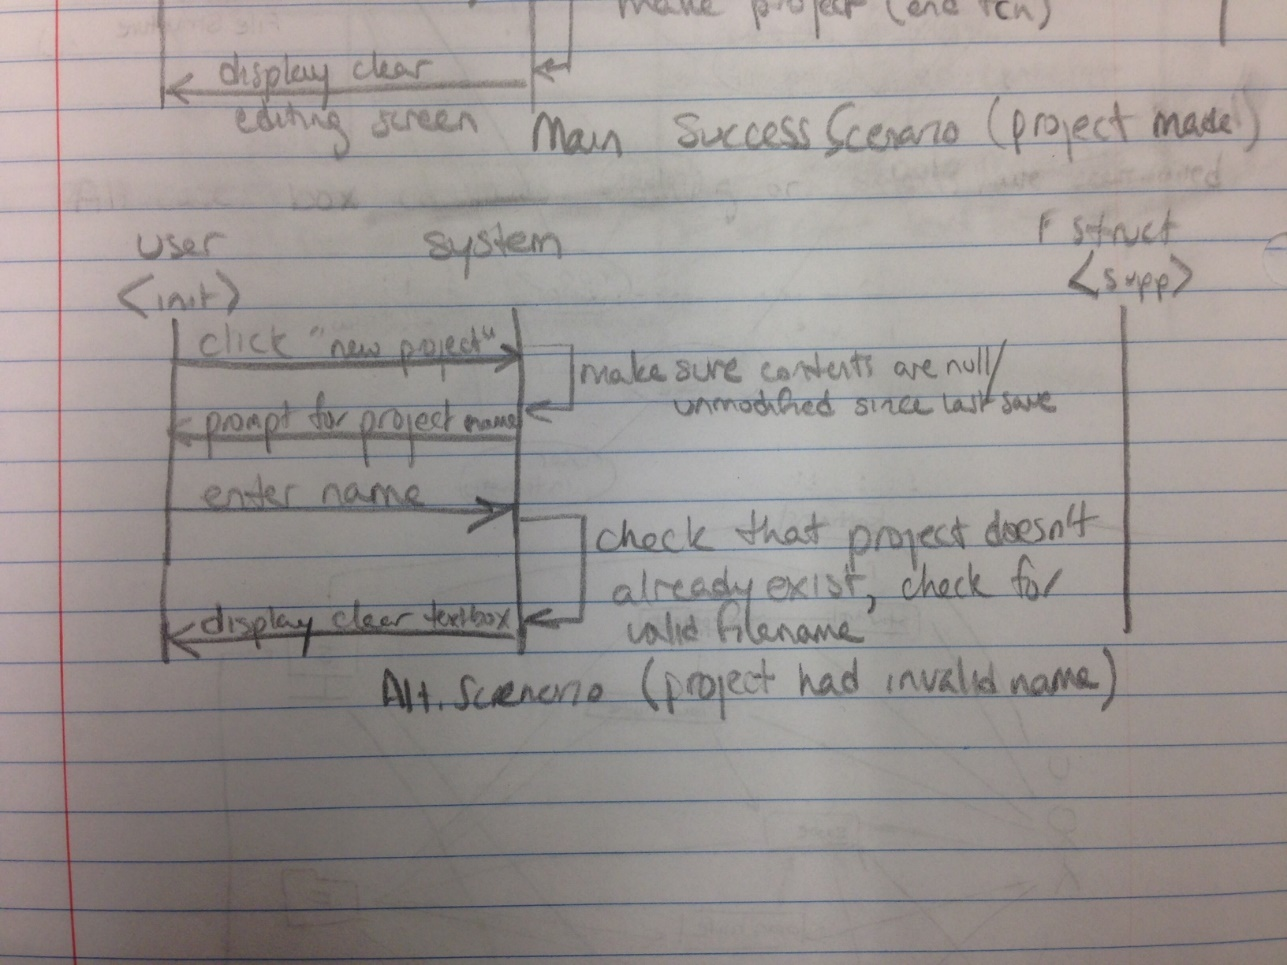 make project (end fcn)
display clear
editing screen
Main Success Scenario (project made)
user system F struct
<init> <supp>
click "new project"
make sure contents are null/
unmodified since last save
prompt for project name
enter name
check that project doesn't
already exist, check for
valid filename
display clear textbox
Alt. Scenerio (project had invalid name)